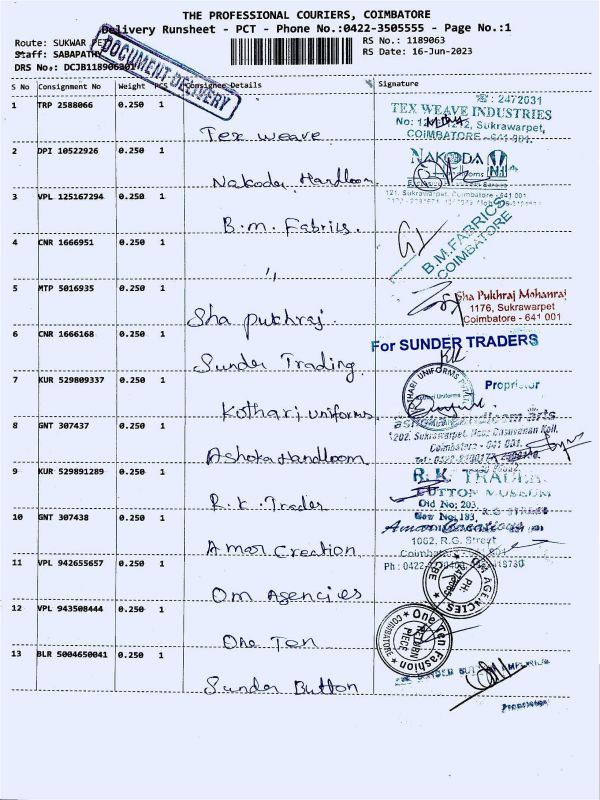 THE PROFESSIONAL COURIERS, COIMBATORE
Delivery Runsheet - PCT - Phone No.:0422-3505555 - Page No.:1
Route: SUKWAR PET
RS No.: 1189063
Staff: SABAPATHY
RS Date: 16-Jun-2023
DRS No.: DCJB118906301
DOCUMENT DELIVERY
S No Consignment No Weight PCS Consignee Details Signature
1 TRP 2588066 0.250 1 Tex weave
☎: 2472031
TEX WEAVE INDUSTRIES
Sukrawarpet,
COIMBATORE - 641 001.
2 DPI 10522926 0.250 1 Nakoda Handloom
NAKODA
121, Sukrawarpet, Coimbatore - 641 001
3 VPL 125167294 0.250 1 B.M. Fabrics.
B.M.FABRICS
COIMBATORE
4 CNR 1666951 0.250 1 "
5 MTP 5016935 0.250 1 Sha pukhraj.
Sha Pukhraj Mohanraj
1176, Sukrawarpet
Coimbatore - 641 001
6 CNR 1666168 0.250 1 Sunder Trading
For SUNDER TRADERS
Proprietor
7 KUR 529809337 0.250 1 Kothari uniforms.
KOTHARI UNIFORMS
Kothari Uniforms
8 GNT 307437 0.250 1 Ashoka Handloom
202, Sukrawarpet,
Coimbatore - 641 001.
9 KUR 529891289 0.250 1 R.K. Trader
R.K. TRADER
BUTTON MUSEUM
Old No: 203,
New No: 183,
10 GNT 307438 0.250 1 Amar Creation
Amar Creations
1062, R.G. Street
Coimbatore
11 VPL 942655657 0.250 1 Om Agencies
OM AGENCIES
CBE
12 VPL 943508444 0.250 1 One Ten
One Ten Fashion
COIMBATORE
13 BLR 5004650041 0.250 1 Sunder Button